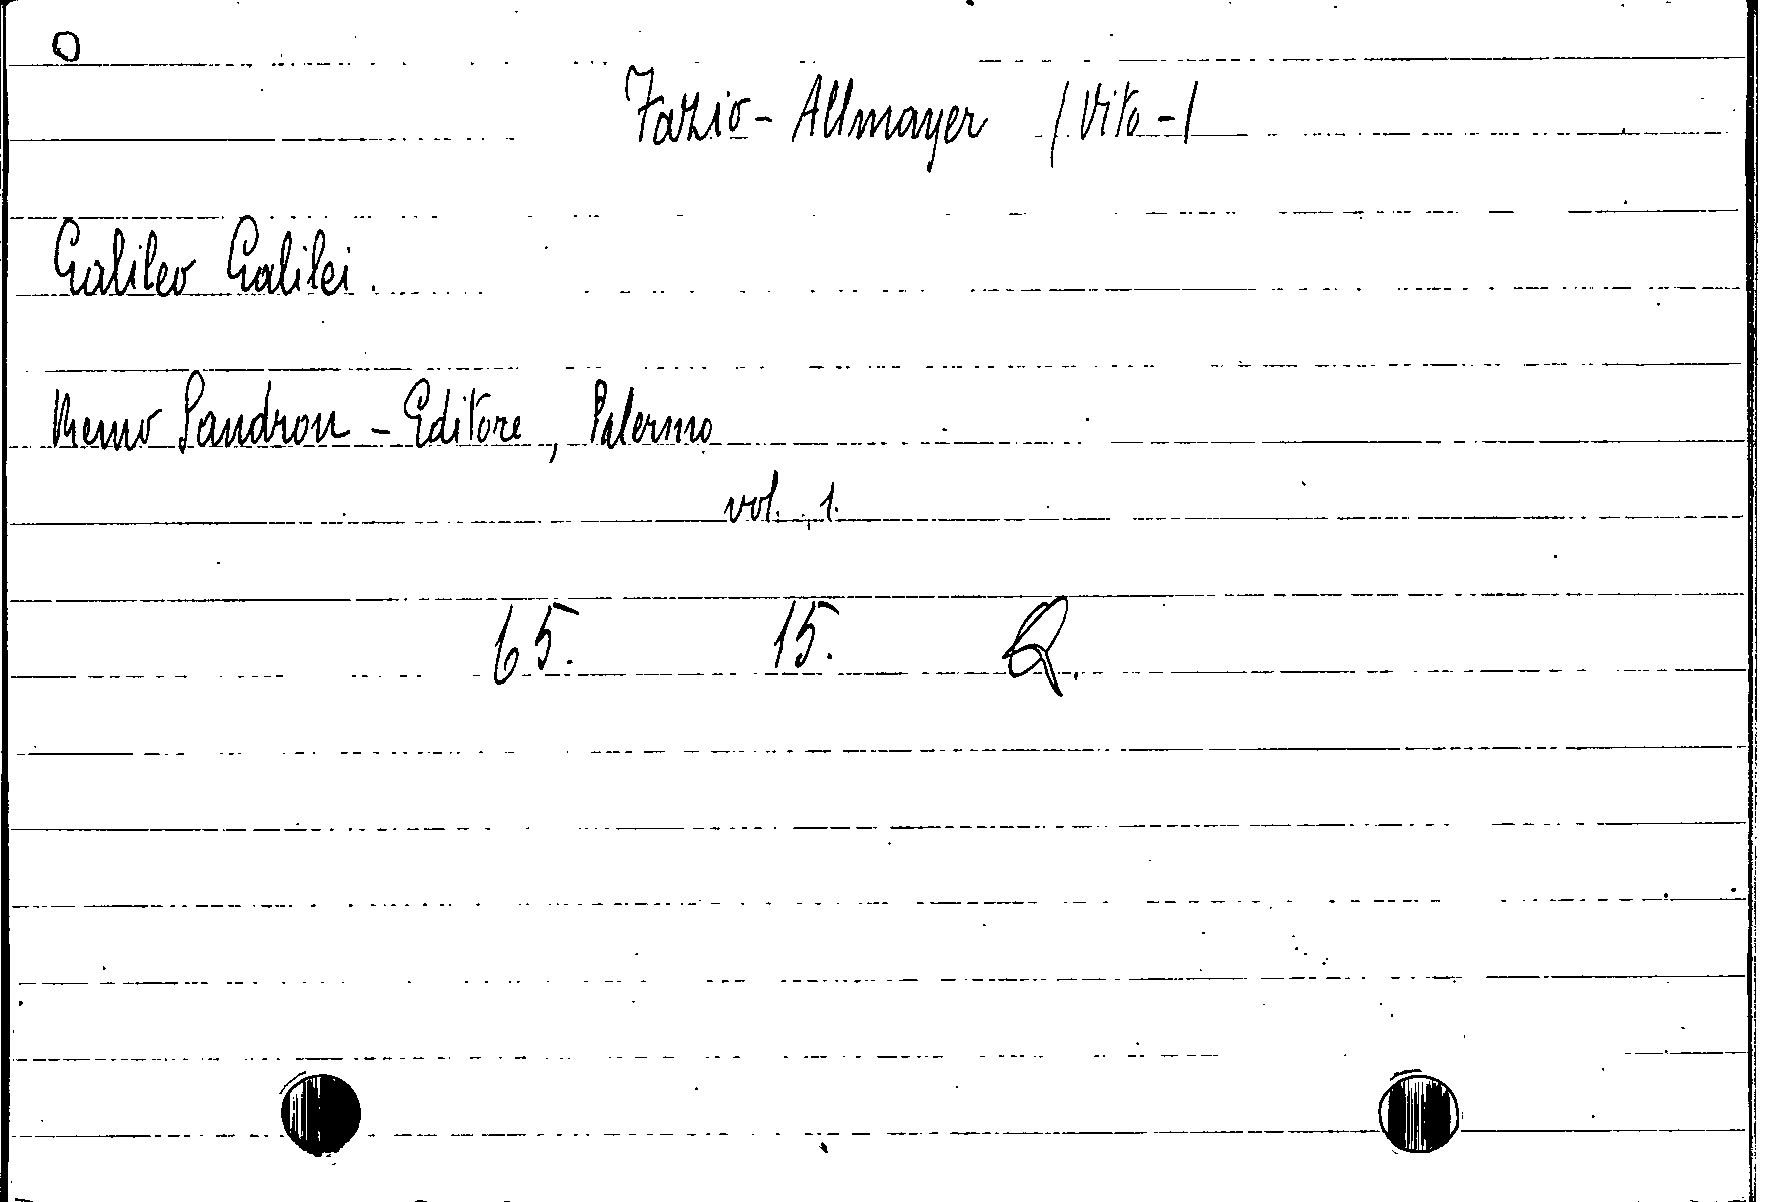 O
Fazio - Allmayer / Vito - /
Galileo Galilei.
Remo Sandron - Editore, Palermo
vol. 1.
65. 15. Q.